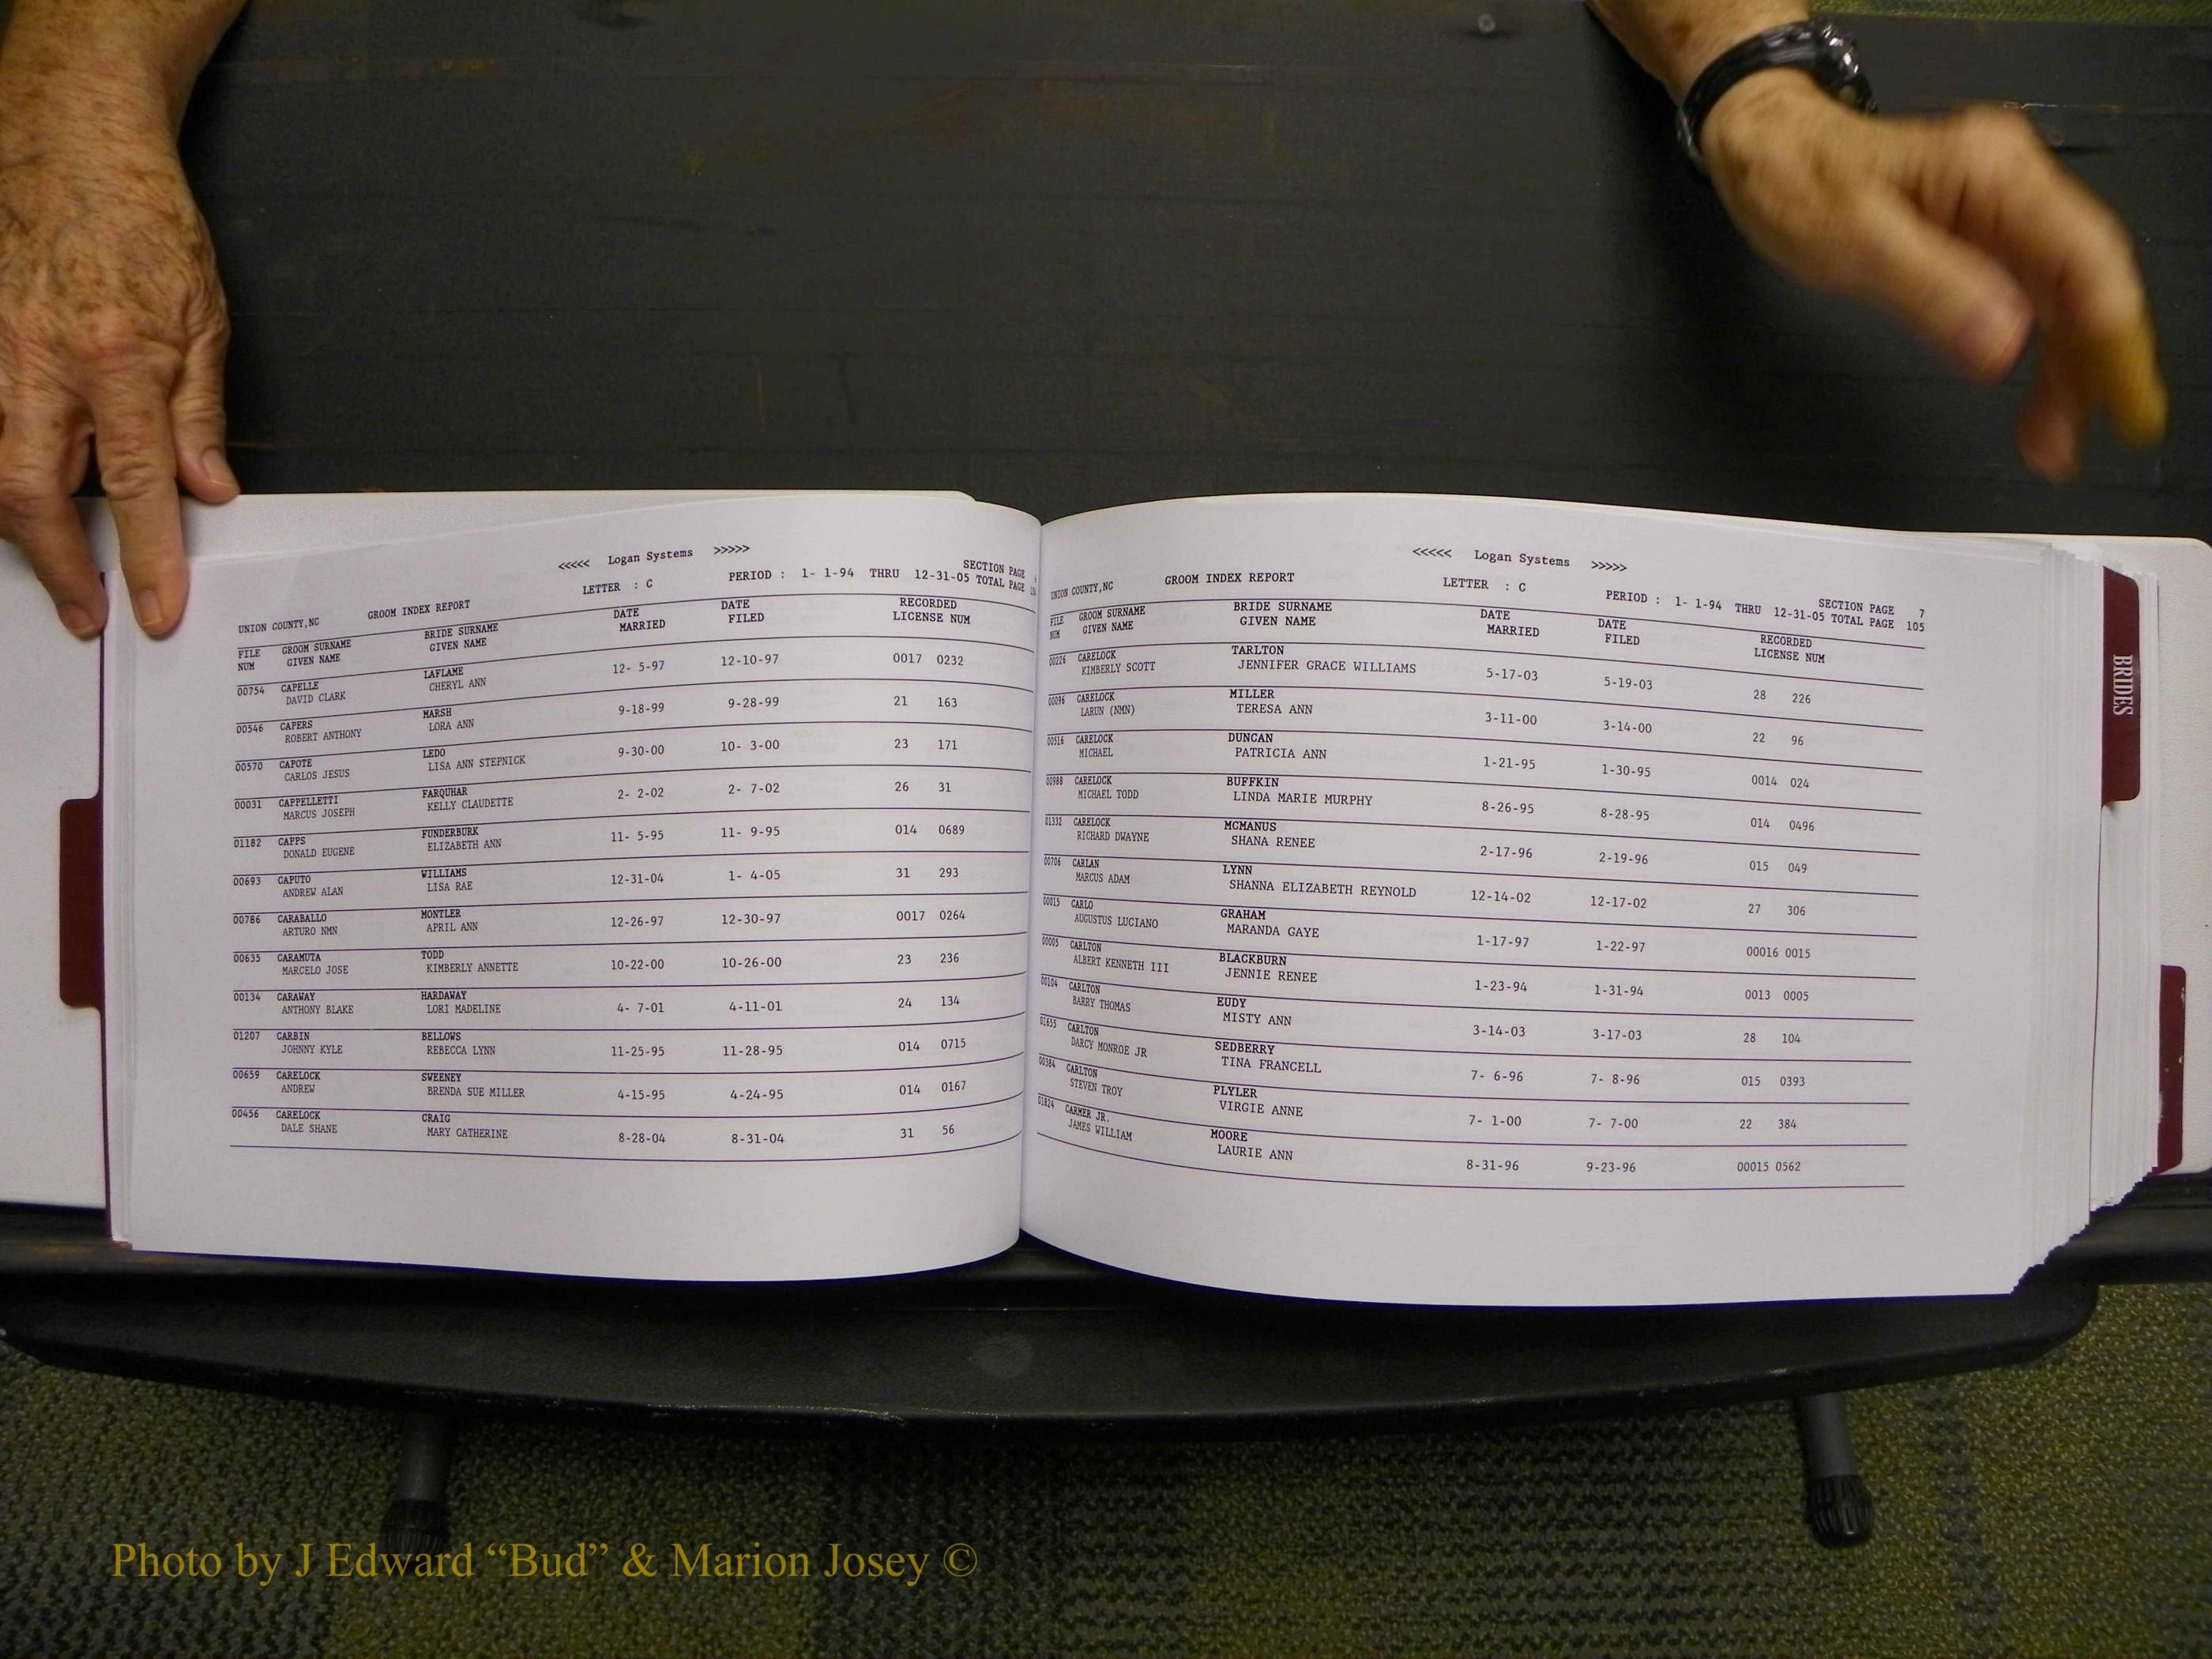 <<<<< Logan Systems >>>>>
UNION COUNTY,NC GROOM INDEX REPORT LETTER : C PERIOD : 1- 1-94 THRU 12-31-05 SECTION PAGE
TOTAL PAGE
FILE GROOM SURNAME BRIDE SURNAME DATE DATE RECORDED
NUM GIVEN NAME GIVEN NAME MARRIED FILED LICENSE NUM
00754 CAPELLE LAFLAME 12- 5-97 12-10-97 0017 0232
DAVID CLARK CHERYL ANN
00546 CAPERS MARSH 9-18-99 9-28-99 21 163
ROBERT ANTHONY LORA ANN
00570 CAPOTE LEDO 9-30-00 10- 3-00 23 171
CARLOS JESUS LISA ANN STEPNICK
00031 CAPPELLETTI FARQUHAR 2- 2-02 2- 7-02 26 31
MARCUS JOSEPH KELLY CLAUDETTE
01182 CAPPS FUNDERBURK 11- 5-95 11- 9-95 014 0689
DONALD EUGENE ELIZABETH ANN
00693 CAPUTO WILLIAMS 12-31-04 1- 4-05 31 293
ANDREW ALAN LISA RAE
00786 CARABALLO MONTLER 12-26-97 12-30-97 0017 0264
ARTURO NMN APRIL ANN
00635 CARAMUTA TODD 10-22-00 10-26-00 23 236
MARCELO JOSE KIMBERLY ANNETTE
00134 CARAWAY HARDAWAY 4- 7-01 4-11-01 24 134
ANTHONY BLAKE LORI MADELINE
01207 CARBIN BELLOWS 11-25-95 11-28-95 014 0715
JOHNNY KYLE REBECCA LYNN
00659 CARELOCK SWEENEY 4-15-95 4-24-95 014 0167
ANDREW BRENDA SUE MILLER
00456 CARELOCK CRAIG 8-28-04 8-31-04 31 56
DALE SHANE MARY CATHERINE
<<<<< Logan Systems >>>>>
UNION COUNTY,NC GROOM INDEX REPORT LETTER : C PERIOD : 1- 1-94 THRU 12-31-05 SECTION PAGE 7
TOTAL PAGE 105
FILE GROOM SURNAME BRIDE SURNAME DATE DATE RECORDED
NUM GIVEN NAME GIVEN NAME MARRIED FILED LICENSE NUM
00226 CARELOCK TARLTON 5-17-03 5-19-03 28 226
KIMBERLY SCOTT JENNIFER GRACE WILLIAMS
00096 CARELOCK MILLER 3-11-00 3-14-00 22 96
LARUN (NMN) TERESA ANN
00516 CARELOCK DUNCAN 1-21-95 1-30-95 0014 024
MICHAEL PATRICIA ANN
00988 CARELOCK BUFFKIN 8-26-95 8-28-95 014 0496
MICHAEL TODD LINDA MARIE MURPHY
01332 CARELOCK MCMANUS 2-17-96 2-19-96 015 049
RICHARD DWAYNE SHANA RENEE
00706 CARLAN LYNN 12-14-02 12-17-02 27 306
MARCUS ADAM SHANNA ELIZABETH REYNOLD
00015 CARLO GRAHAM 1-17-97 1-22-97 00016 0015
AUGUSTUS LUCIANO MARANDA GAYE
00005 CARLTON BLACKBURN 1-23-94 1-31-94 0013 0005
ALBERT KENNETH III JENNIE RENEE
00104 CARLTON EUDY 3-14-03 3-17-03 28 104
BARRY THOMAS MISTY ANN
01655 CARLTON SEDBERRY 7- 6-96 7- 8-96 015 0393
DARCY MONROE JR TINA FRANCELL
00384 CARLTON PLYLER 7- 1-00 7- 7-00 22 384
STEVEN TROY VIRGIE ANNE
01824 CARMER JR. MOORE 8-31-96 9-23-96 00015 0562
JAMES WILLIAM LAURIE ANN
BRIDES
Photo by J Edward “Bud” & Marion Josey ©